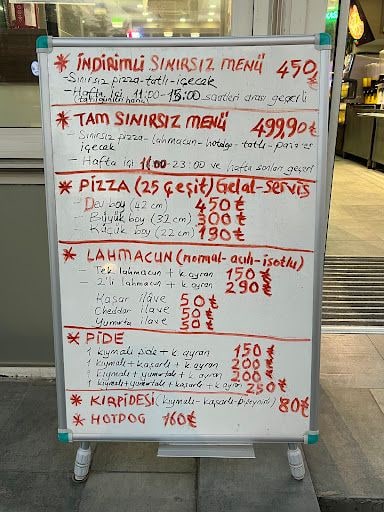 * İNDİRİMLİ SINIRSIZ MENÜ 450₺
-Sınırsız pizza-tatlı-içecek
-Hafta içi 11:00-15:00 saatleri arası geçerli
* TAM SINIRSIZ MENÜ 499,90₺
- Sınırsız pizza-lahmacun-hotdog-tatlı-
içecek
- Hafta içi 11:00-23:00 ve hafta sonları geçerli
* PİZZA (25 çeşit) Gelal-Servis
- Dev boy (42 cm) 450₺
- Büyük boy (32 cm) 300₺
- Küçük boy (22 cm) 190₺
* LAHMACUN (normal-acılı-isotlu)
- Tek lahmacun + k. ayran 150₺
- 2'li lahmacun + k. ayran 290₺
Kaşar ilave 50₺
Cheddar ilave 50₺
Yumurta ilave 50₺
* PİDE
1 kıymalı pide + k. ayran 150₺
1 kıymalı + kaşarlı + k. ayran 200₺
1 kıymalı + yumurtalı + k. ayran 200₺
1 kıymalı + yumurtalı + kaşarlı + k. ayran 250₺
* KIRPİDESİ (kıymalı-kaşarlı-) 80₺
* HOTDOG 160₺